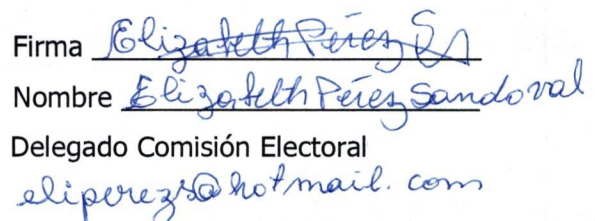 Firma Elizabeth Pérez S
Nombre Elizabeth Pérez Sandoval
Delegado Comisión Electoral
eliperezs@hotmail.com